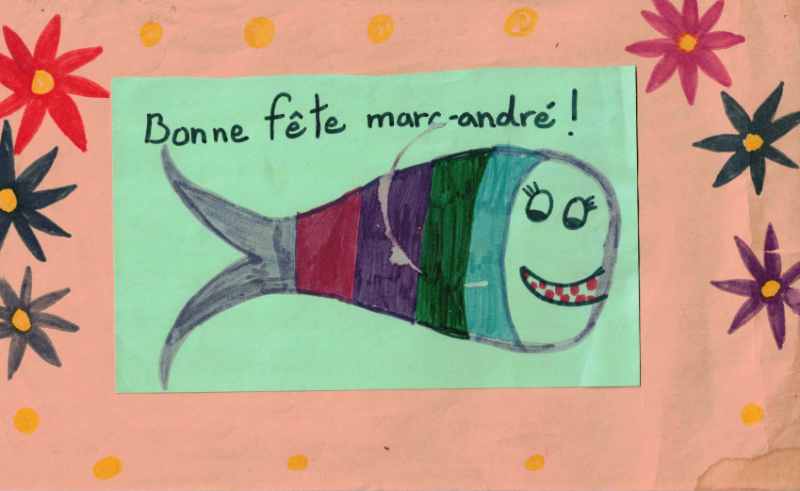 Bonne fête marc-andré!